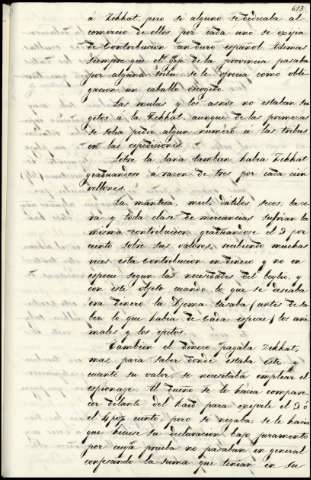 613
á Zekkat, pero si alguno se dedicaba al
comercio de ellos por cada uno se exigia
de contribucion un duro español. Ademas
siempre que el Gefe de la provincia pasaba
por alguna tribu se le ofrecia como obli-
gacion un caballo escogido.
Las mulas y los asnos no estaban su-
getos á la Zekkat, aunque de las primeras
se solia pedir algun numero á las tribus
en las espediciones.
Sobre la lana tambien habia Zekkat
graduandose á razon de tres por cada cien
vellones.
La manteca, miel, datiles secos, ce-
ra y toda clase de mercancias sufrian la
misma contribucion, graduandose el 3 por
ciento sobre sus valores, recibiendo muchas
veces esta contribucion en dinero y no en
especie segun las necesidades del
con este objeto cuando lo que se deseaba
era dinero la Djema tasaba (antes de sa-
ber lo que habia de cada especie) los ani-
males y los efectos.
Tambien el dinero pagaba Zekkat,
mas para saber donde estaba este y
cuanto su valor, se necesitaba emplear el
espionage. Al dueño se le hacia compare-
cer delante del Kaid para exigirle el 3 ó
el 4 por ciento, pero si negaba se le hacia
que hiciese su declaracion bajo juramento
por cuya prueba no pasaban en general
confesando la suma que tenian en su